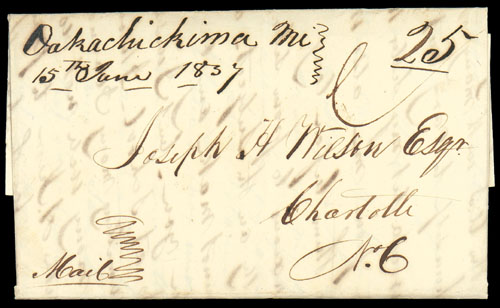 Oakachickima Mi
25
15th June 1837
Joseph H Wilson Esqr.
Charlotte
No. C
Mail